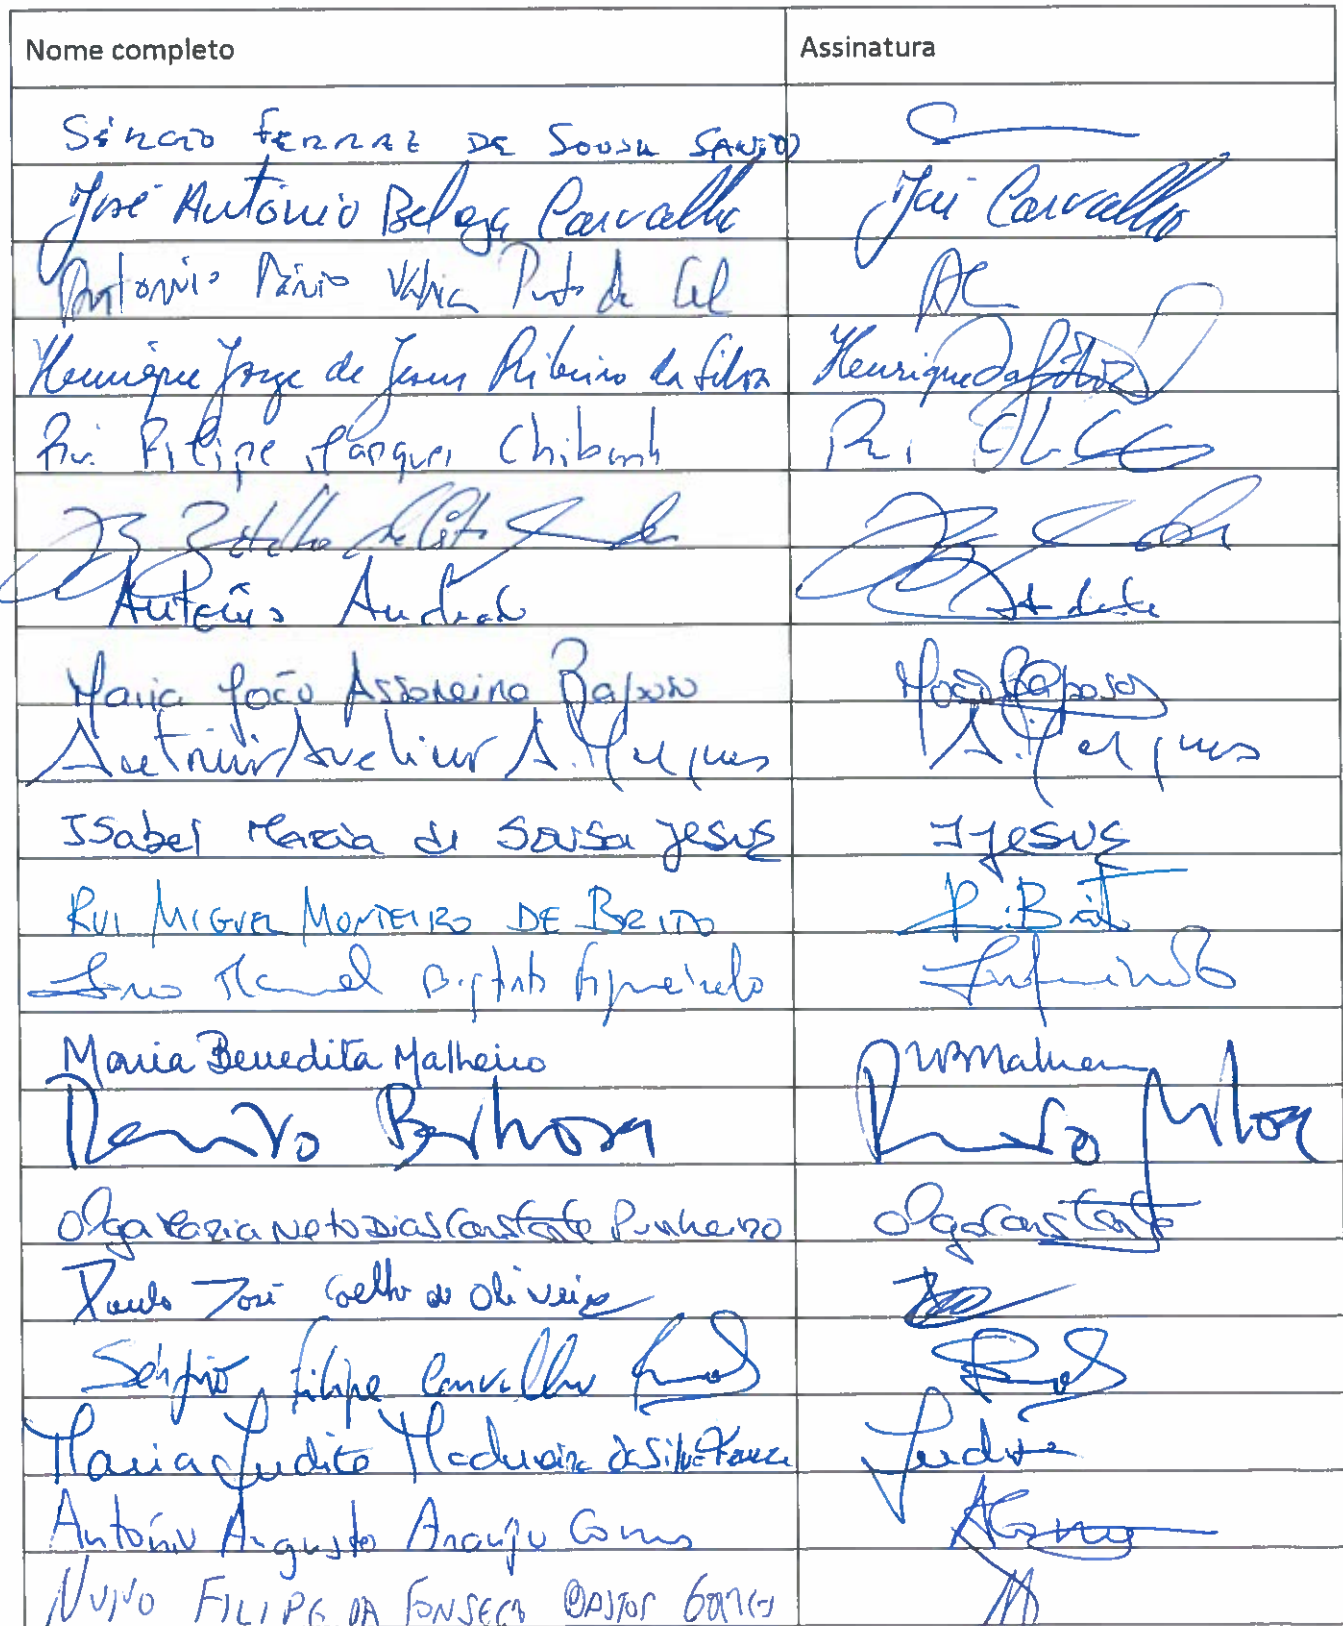 Nome completo Assinatura
Sérgio Ferraz de Sousa Santo
José António Beleza Carvalho José Carvalho
António Mário Pinto de AC
Henrique Jorge de Jesus Ribeiro da Silva Henrique da Silva
Rui Filipe Marques Chibante Rui
Botelho da Costa
António Andrade Andrade
Maria João Assoreira Raposo Mª João Raposo
António Avelino A. Marques A. Marques
Isabel Maria de Sousa Jesus IJesus
RUI MIGUEL MONTEIRO DE BRITO R. Brito
Manuel Baptista Figueiredo
Maria Benedita Malheiro MBMalheiro
Renato Barbosa Barbosa
Olga Maria Neto Dias Constante Pinheiro Olga Constante
Paulo José Coelho de Oliveira
Sérgio Filipe Carvalho
Maria Judite Madureira da Silva Ferreira Judite
António Augusto Araújo Gomes AGomes
NUNO FILIPE DA FONSECA BASTOS GOMES